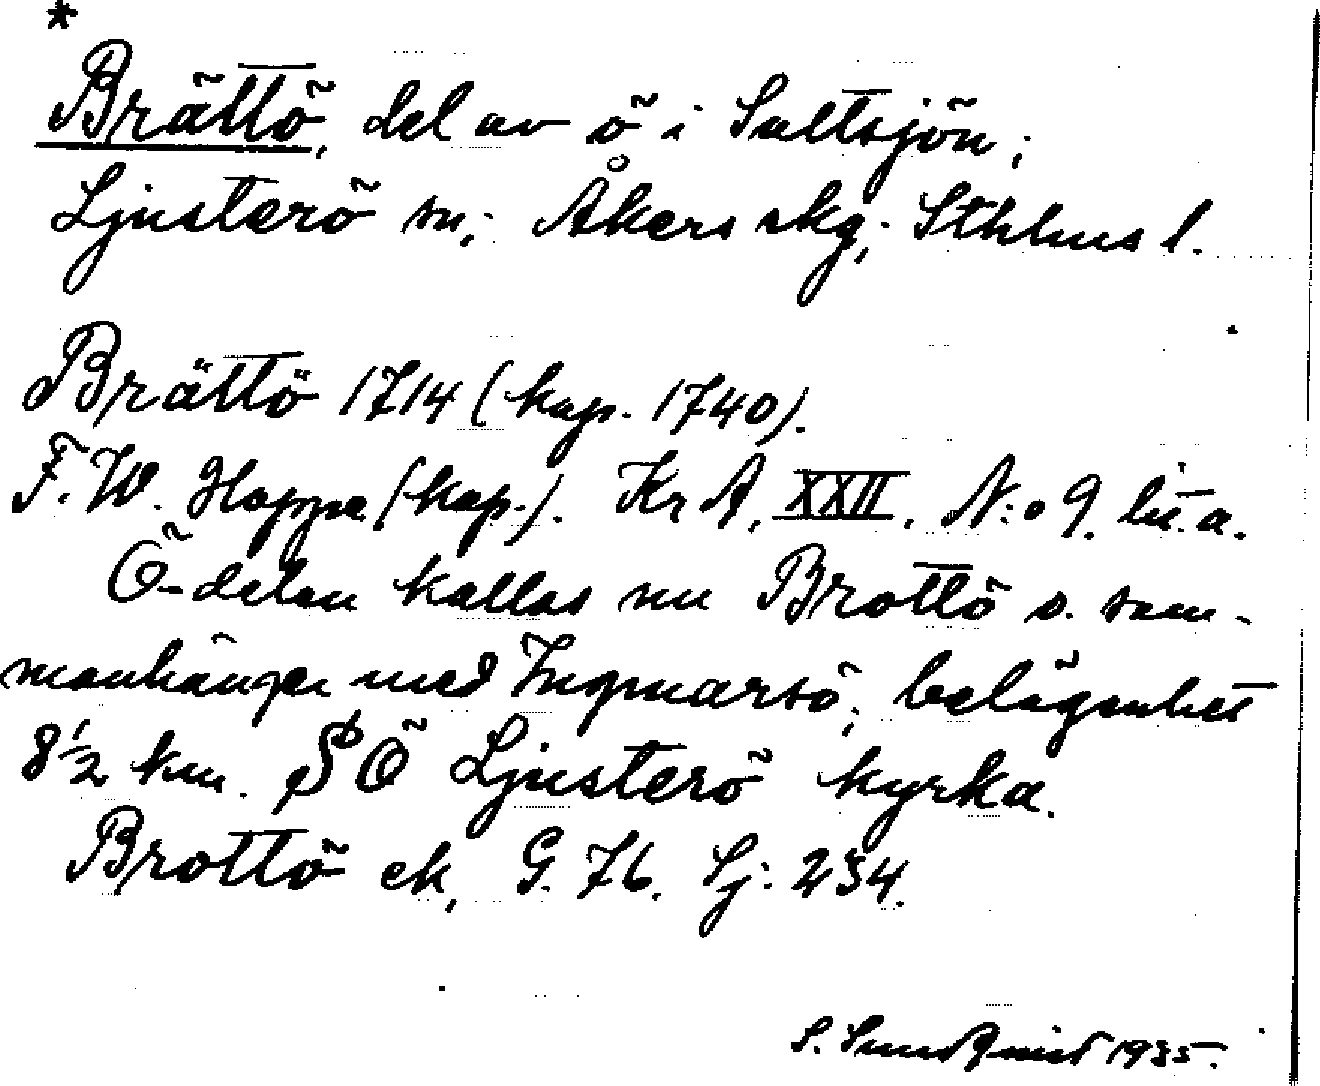 *
Brättö, del av ö i Saltsjön;
Ljusterö sn; Åkers skg; Sthlms l.
Brättö 1714 (kap. 1740).
F. W. Hoppe (kap.). Kr A, XXII, N:o 9. lit. a.
Ö-delen kallas nu Brottö o. sam-
manhänger med Ingmarsö; belägenhet
8 1/2 km. SO Ljusterö kyrka.
Brottö ek, G. 76. Lj: 234.
S. Sundqvist 1935.